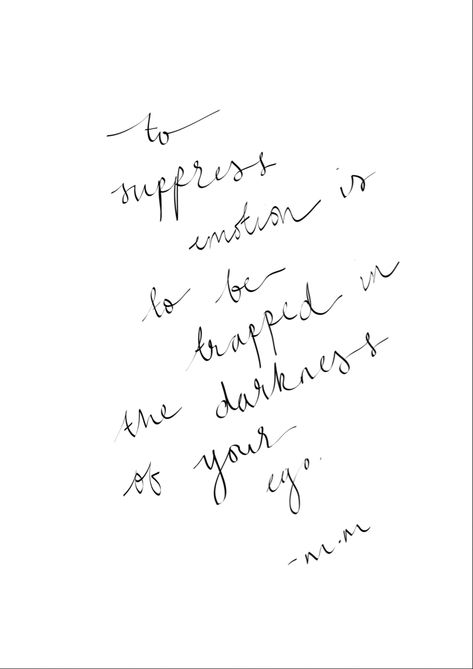 to
suppress
emotion is
to be
trapped in
the darkness
of your
ego.
-m.m